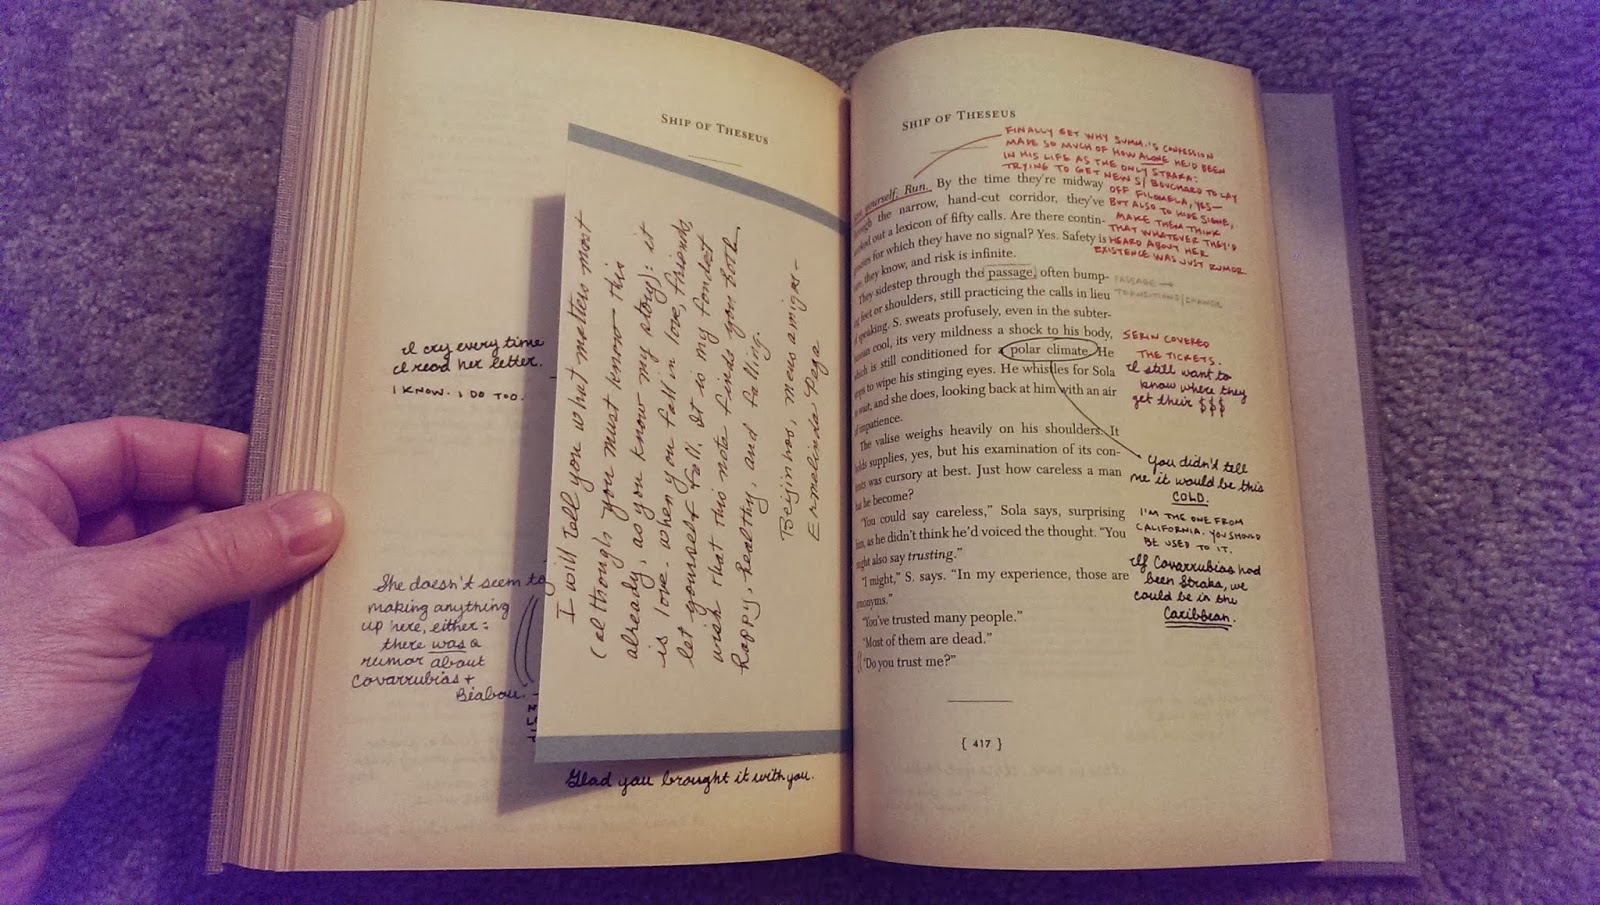 SHIP OF THESEUS
I cry every time
I read her letter.
I KNOW. I DO TOO.
She doesn't seem to
making anything
up here, either:
there was a
rumor about
Covarrubias +
Beabou.
I will tell you what matters most
(although you must know this
already, as you know my story): it
is love. When you fall in love, friends,
let yourself fall. It is my fondest
wish that this note finds you both
happy, healthy, and falling.
Beijinhos, meus amigos –
Ermelinda Pega
Glad you brought it with you.
SHIP OF THESEUS
FINALLY GET WHY SUMM.'S CONFESSION
MADE SO MUCH OF HOW ALONE HE'D BEEN
IN HIS LIFE AS THE ONLY STRAKA:
TRYING TO GET NEWS/BOUCHARD TO LAY
OFF FILOMELA, YES—
BUT ALSO TO HIDE SIGNE,
MAKE THEM THINK
THAT WHATEVER THEY'D
HEARD ABOUT HER
EXISTENCE WAS JUST RUMOR
yourself; Run. By the time they're midway
the narrow, hand-cut corridor, they've
out a lexicon of fifty calls. Are there contin-
for which they have no signal? Yes. Safety is
they know, and risk is infinite.
They sidestep through the passage, often bump-
feet or shoulders, still practicing the calls in lieu
of speaking. S. sweats profusely, even in the subter-
cool, its very mildness a shock to his body,
which is still conditioned for a polar climate. He
to wipe his stinging eyes. He whistles for Sola
wait, and she does, looking back at him with an air
of impatience.
The valise weighs heavily on his shoulders. It
holds supplies, yes, but his examination of its con-
tents was cursory at best. Just how careless a man
has he become?
"You could say careless," Sola says, surprising
him, as he didn't think he'd voiced the thought. "You
might also say trusting."
"I might," S. says. "In my experience, those are
synonyms."
"You've trusted many people."
"Most of them are dead."
"Do you trust me?"
PASSAGE →
TRANSITIONS/CHANGE
SERIN COVERED
THE TICKETS.
I still want to
know where they
get their $$$
You didn't tell
me it would be this
COLD.
I'M THE ONE FROM
CALIFORNIA. YOU SHOULD
BE USED TO IT.
If Covarrubias had
been Straka, we
could be in the
Caribbean.
{ 417 }